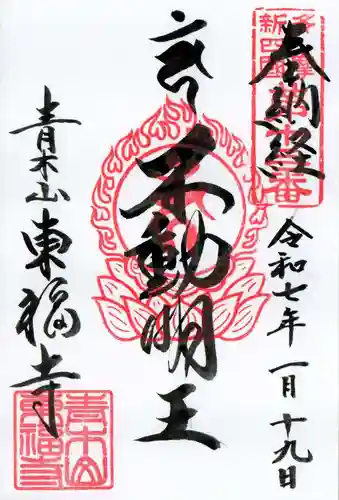 奉納経
多摩
新四国
令和七年 一月 十九日
不動明王
青木山 東福寺
青木山
東福寺